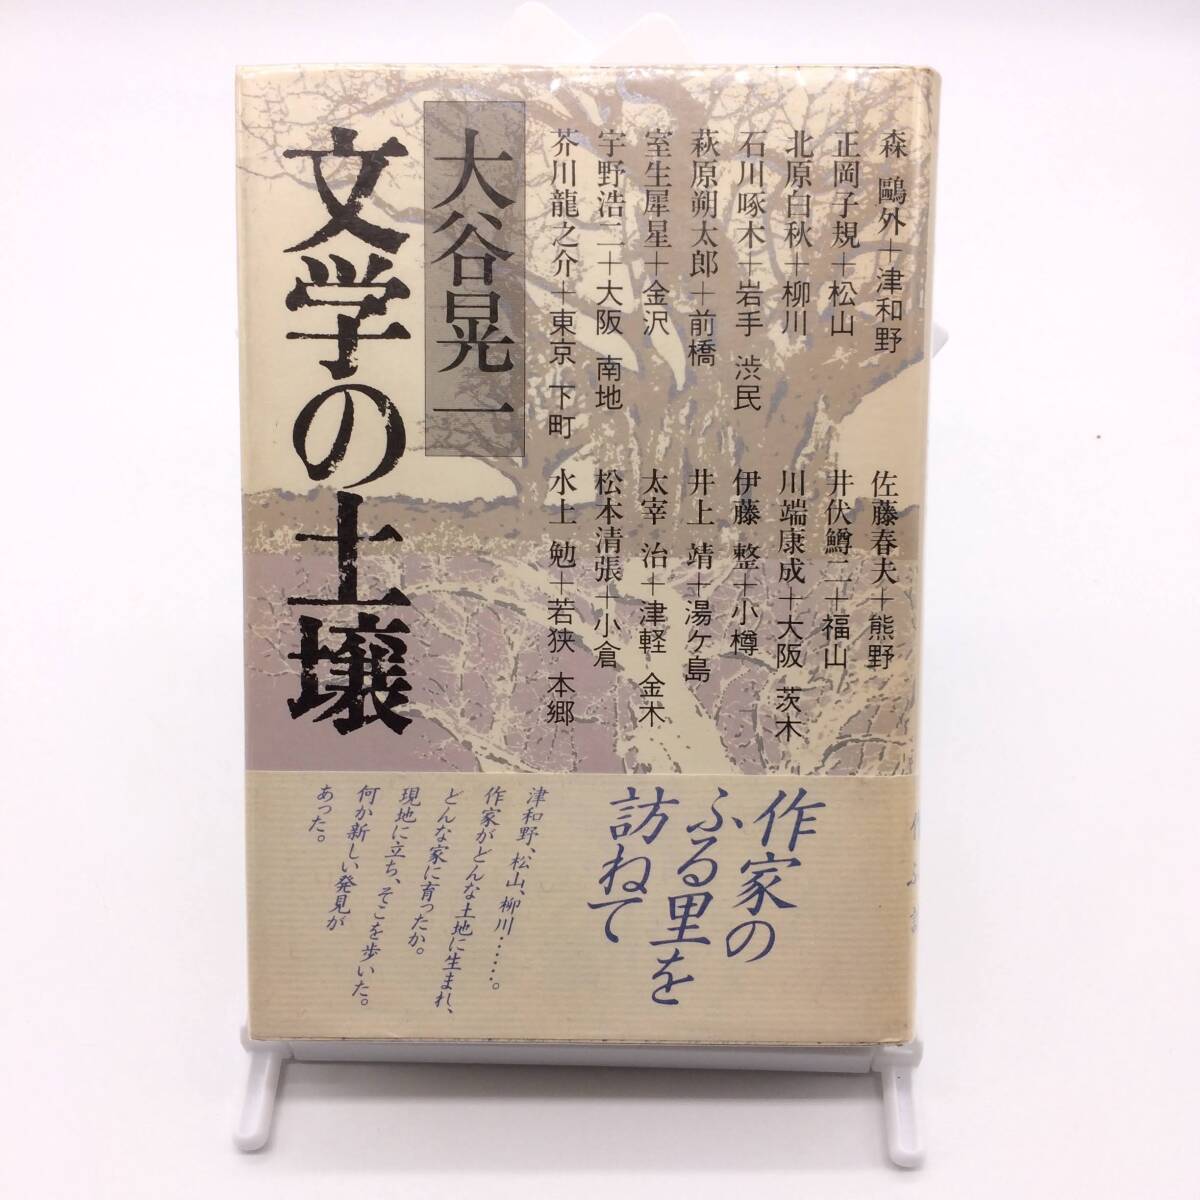 森 鷗外＋津和野
正岡子規＋松山
北原白秋＋柳川
石川啄木＋岩手 渋民
萩原朔太郎＋前橋
室生犀星＋金沢
宇野浩二＋大阪 南地
芥川龍之介＋東京 下町
佐藤春夫＋熊野
井伏鱒二＋福山
川端康成＋大阪 茨木
伊藤 整＋小樽
井上 靖＋湯ケ島
太宰 治＋津軽 金木
松本清張＋小倉
水上 勉＋若狭 本郷
大谷晃一
文学の土壌
作家の
ふる里を
訪ねて
津和野、松山、柳川……。
作家がどんな土地に生まれ、
どんな家に育ったか。
現地に立ち、そこを歩いた。
何か新しい発見が
あった。